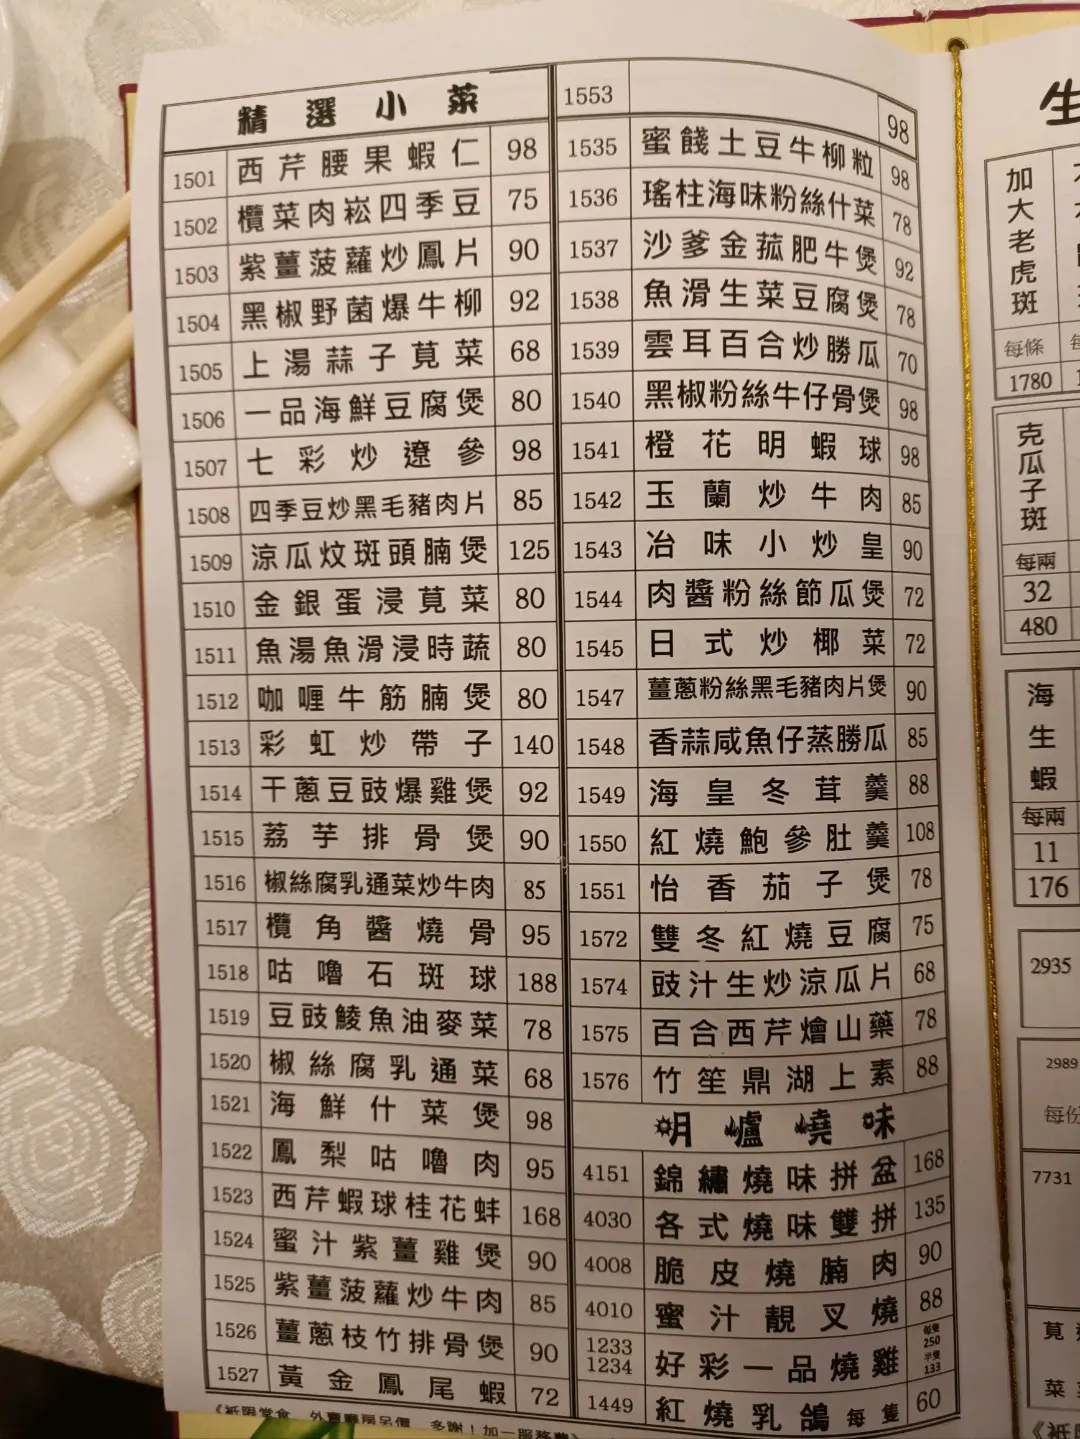 精選小菜
1501 西芹腰果蝦仁 98
1502 欖菜肉崧四季豆 75
1503 紫薑菠蘿炒鳳片 90
1504 黑椒野菌爆牛柳 92
1505 上湯蒜子莧菜 68
1506 一品海鮮豆腐煲 80
1507 七彩炒遼參 98
1508 四季豆炒黑毛豬肉片 85
1509 涼瓜炆斑頭腩煲 125
1510 金銀蛋浸莧菜 80
1511 魚湯魚滑浸時蔬 80
1512 咖喱牛筋腩煲 80
1513 彩虹炒帶子 140
1514 干蔥豆豉爆雞煲 92
1515 荔芋排骨煲 90
1516 椒絲腐乳通菜炒牛肉 85
1517 欖角醬燒骨 95
1518 咕嚕石斑球 188
1519 豆豉鯪魚油麥菜 78
1520 椒絲腐乳通菜 68
1521 海鮮什菜煲 98
1522 鳳梨咕嚕肉 95
1523 西芹蝦球桂花蚌 168
1524 蜜汁紫薑雞煲 90
1525 紫薑菠蘿炒牛肉 85
1526 薑蔥枝竹排骨煲 90
1527 黃金鳳尾蝦 72
1553 98
1535 蜜餞土豆牛柳粒 98
1536 瑤柱海味粉絲什菜 78
1537 沙爹金菰肥牛煲 92
1538 魚滑生菜豆腐煲 78
1539 雲耳百合炒勝瓜 70
1540 黑椒粉絲牛仔骨煲 98
1541 橙花明蝦球 98
1542 玉蘭炒牛肉 85
1543 冶味小炒皇 90
1544 肉醬粉絲節瓜煲 72
1545 日式炒椰菜 72
1547 薑蔥粉絲黑毛豬肉片煲 90
1548 香蒜咸魚仔蒸勝瓜 85
1549 海皇冬茸羹 88
1550 紅燒鮑參肚羹 108
1551 怡香茄子煲 78
1572 雙冬紅燒豆腐 75
1574 豉汁生炒涼瓜片 68
1575 百合西芹燴山藥 78
1576 竹笙鼎湖上素 88
明爐燒味
4151 錦繡燒味拼盆 168
4030 各式燒味雙拼 135
4008 脆皮燒腩肉 90
4010 蜜汁靚叉燒 88
1233 1234 好彩一品燒雞 每隻 250 半隻 133
1449 紅燒乳鴿 每隻 60
《祇限堂食，外賣廳房另價，多謝！加一服務費》
生
加大老虎斑
每條
1780
克瓜子斑
每兩
32
480
海生蝦
每兩
11
176
2935
2989
每份
7731
莧
菜
《祇